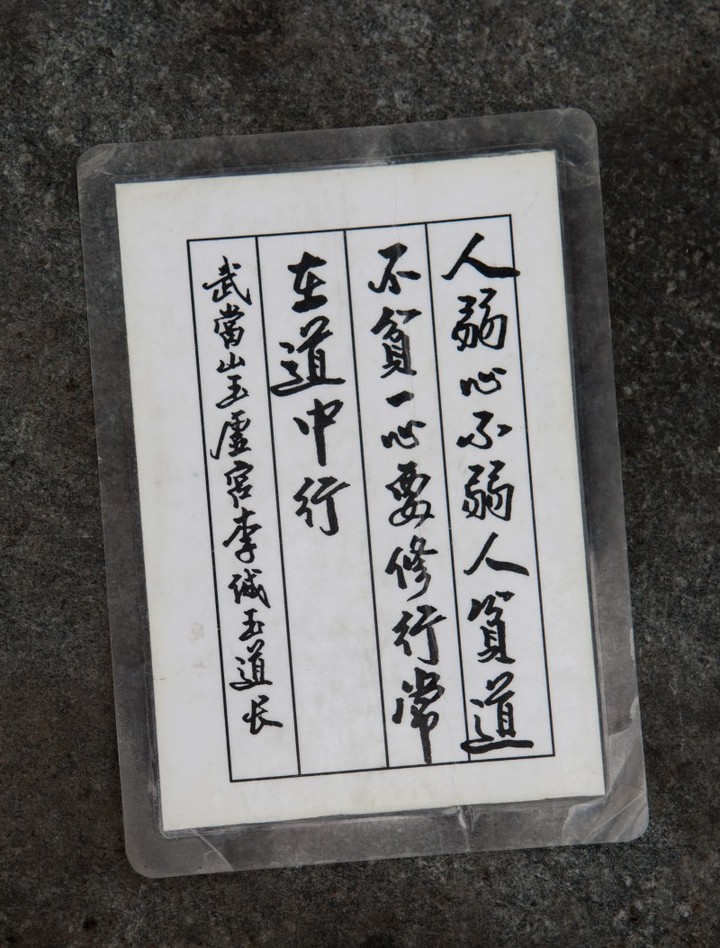 人弱心不弱人貧道
不貧一心要修行常
在道中行
武當山玉虛宮李诚玉道长